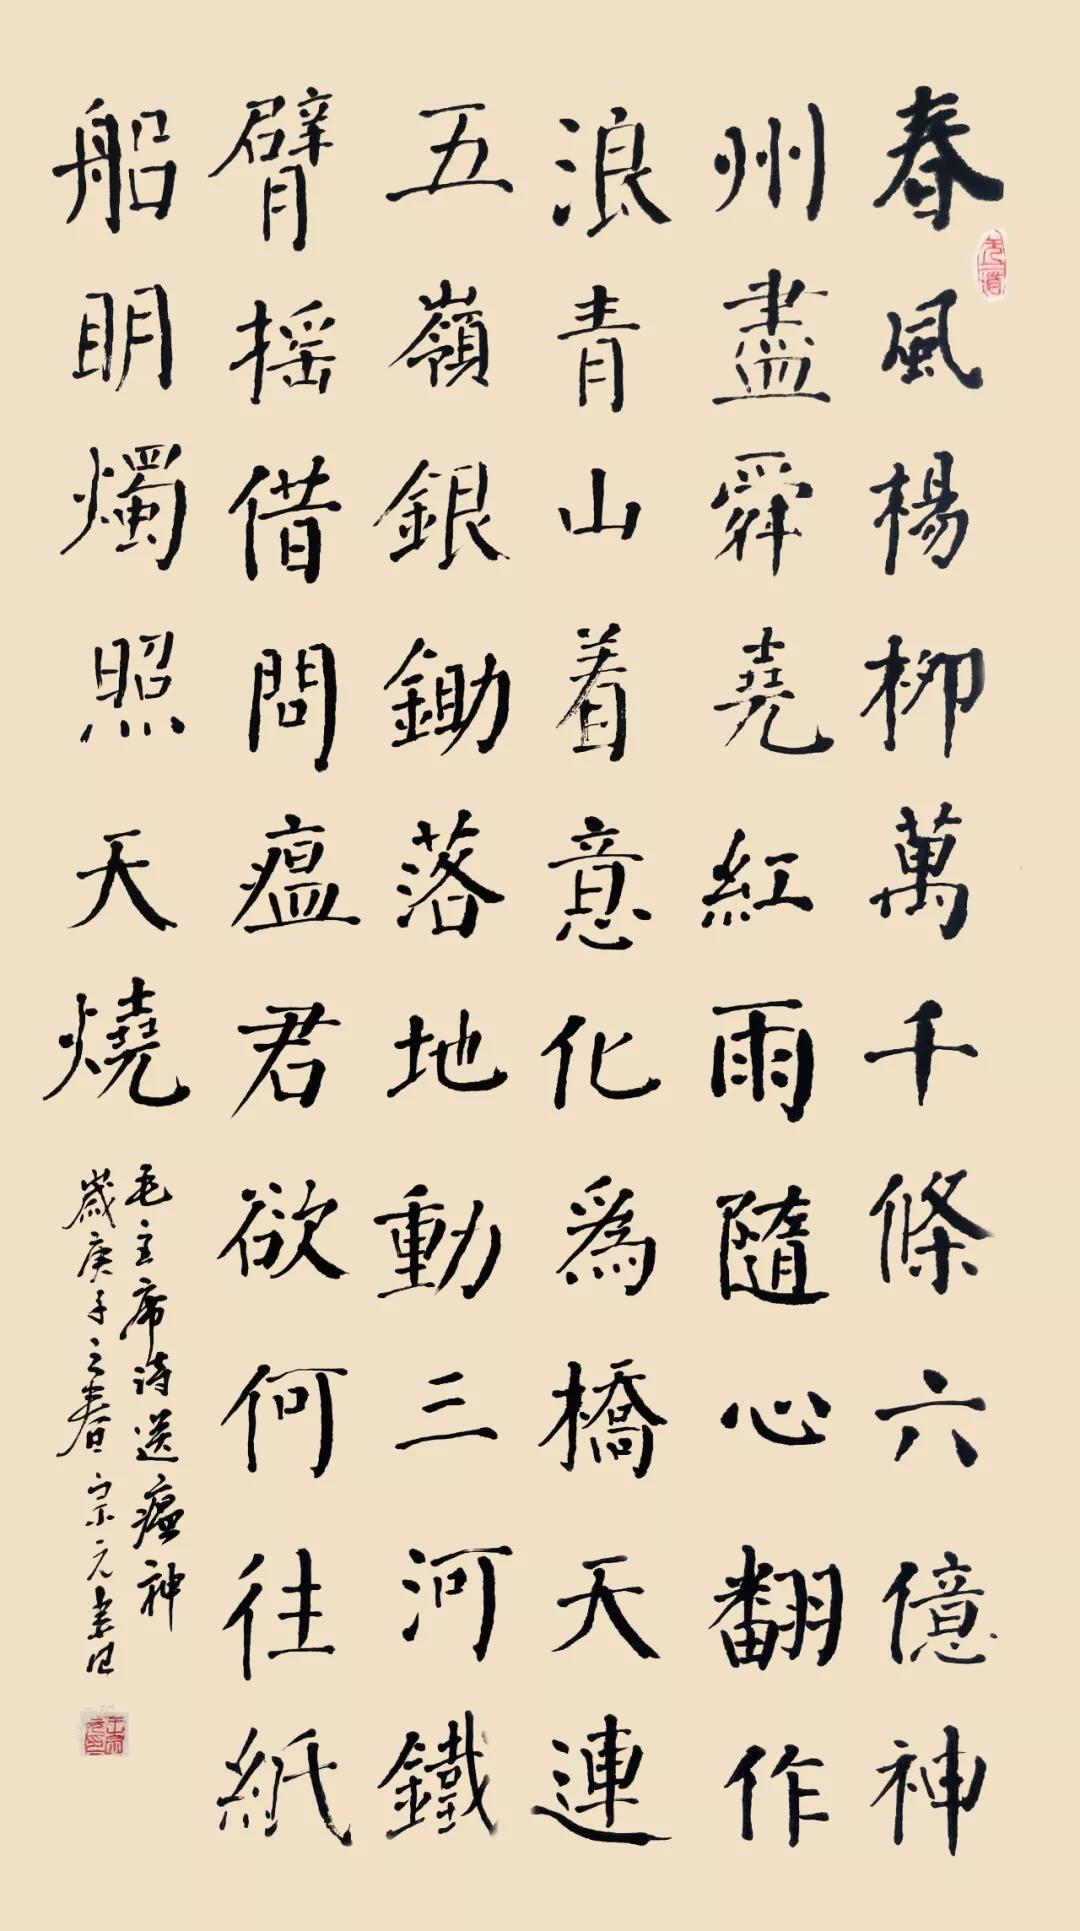 春風楊柳萬千條六億神
州盡舜堯紅雨隨心翻作
浪青山着意化為橋天連
五嶺銀鋤落地動三河鐵
臂摇借問瘟君欲何往紙
船明燭照天燒
毛主席诗送瘟神
歲庚子之春宗元書